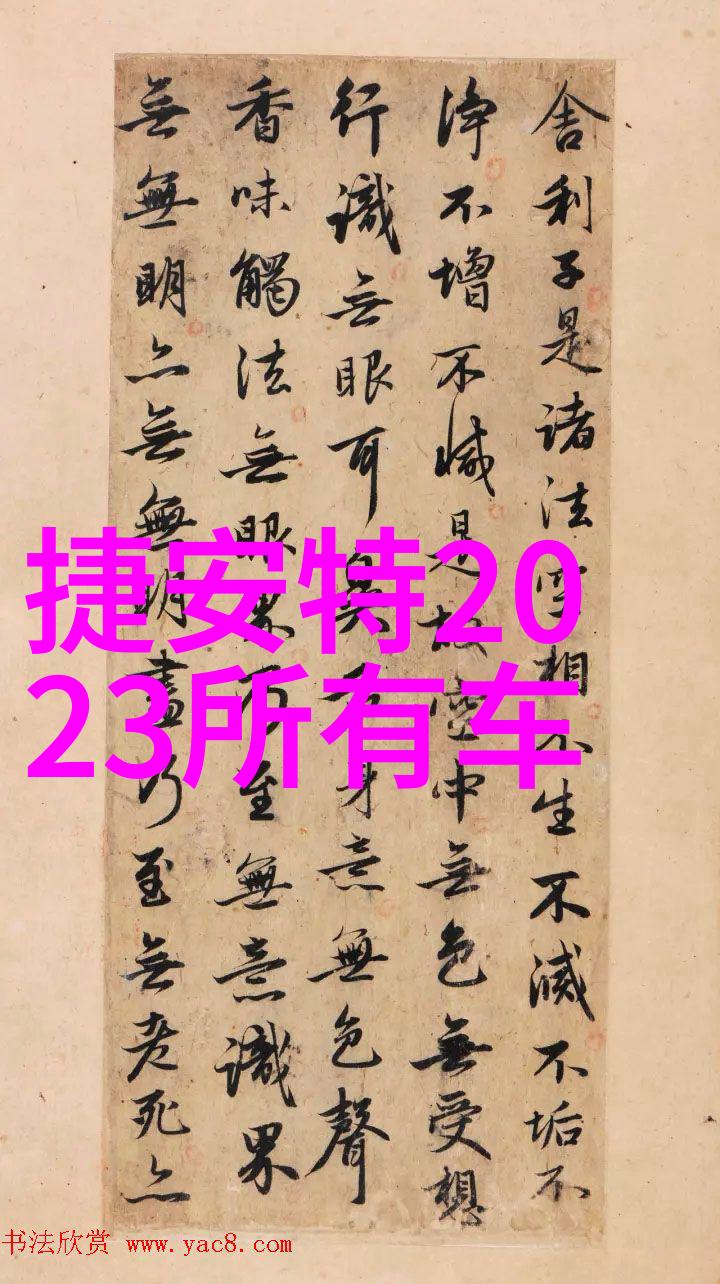 舍利子是諸法空相不生不滅不垢不
淨不增不減是故空中無色無受想
行識無眼耳鼻舌身意無色聲
香味觸法無眼界乃至無意識界
無無明亦無無明盡乃至無老死亦
捷安特20
23所有车
书法欣赏 www.yac8.com